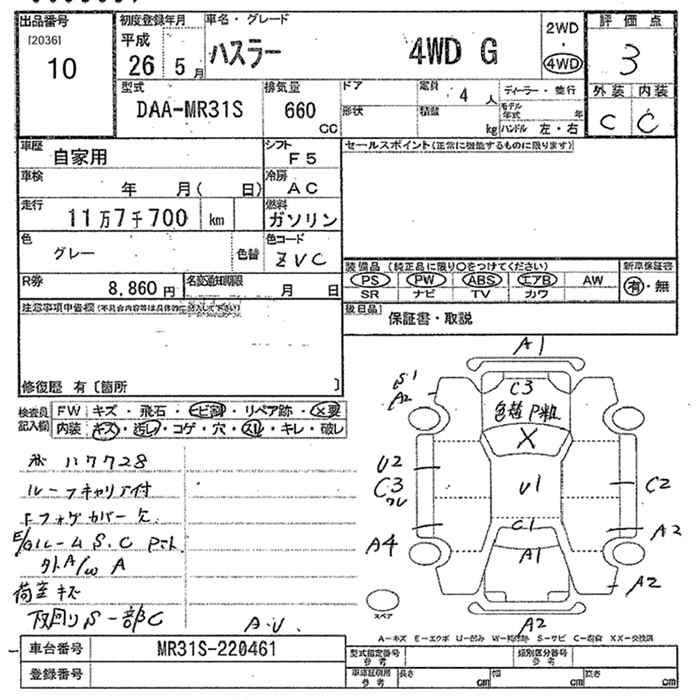 出品番号
[2036]
10
初度登録年月
平成
26 5 月
車名・グレード
ハスラー 4WD G
2WD
・
4WD
評価点
3
外装 内装
C C
型式
DAA-MR31S
排気量
660
CC
ドア
形状
定員 4 人
積載 kg
ディーラー・並行
モデル年式 年
ハンドル 左・右
車歴
自家用
シフト
F5
車検
年 月( 日)
冷房
AC
走行
11万7千700 km
燃料
ガソリン
色
グレー
色替
色コード
ZVC
R券
8,860円
名変通知期限
月 日
セールスポイント(正常に機能するものに限ります)
装備品 (純正品に限り○をつけてください)
新車保証書
PS PW ABS エアB AW
SR ナビ TV カワ
有・無
後日品
保証書・取説
注意事項申告欄(不具合内容等は具体的に記入して下さい)
修復歴 有 [箇所 ]
検査員
記入欄
FW キズ・飛石・ヒビ割・リペア跡・X要
内装 キズ・汚レ・コゲ・穴・スレ・キレ・破レ
117728
ルーフキャリア付
Fフォグカバー欠
E/gルームS.C
外A/W A
荷室キズ
下回りS一部C
A.U.
A1
S1
A2
C3
色替
X
U2
C3
U1
C2
C1
A1
A4
A2
A2
A2
スペア
A-キズ E-エクボ U-凹み W-補修跡 S-サビ C-腐食 XX-交換済
車台番号
MR31S-220461
登録番号
型式指定番号
参考
類別区分番号
参考
車庫証明用
参考
長さ cm
幅 cm
高さ cm